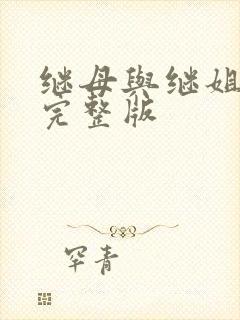 继母與继姐
完整版
罕青